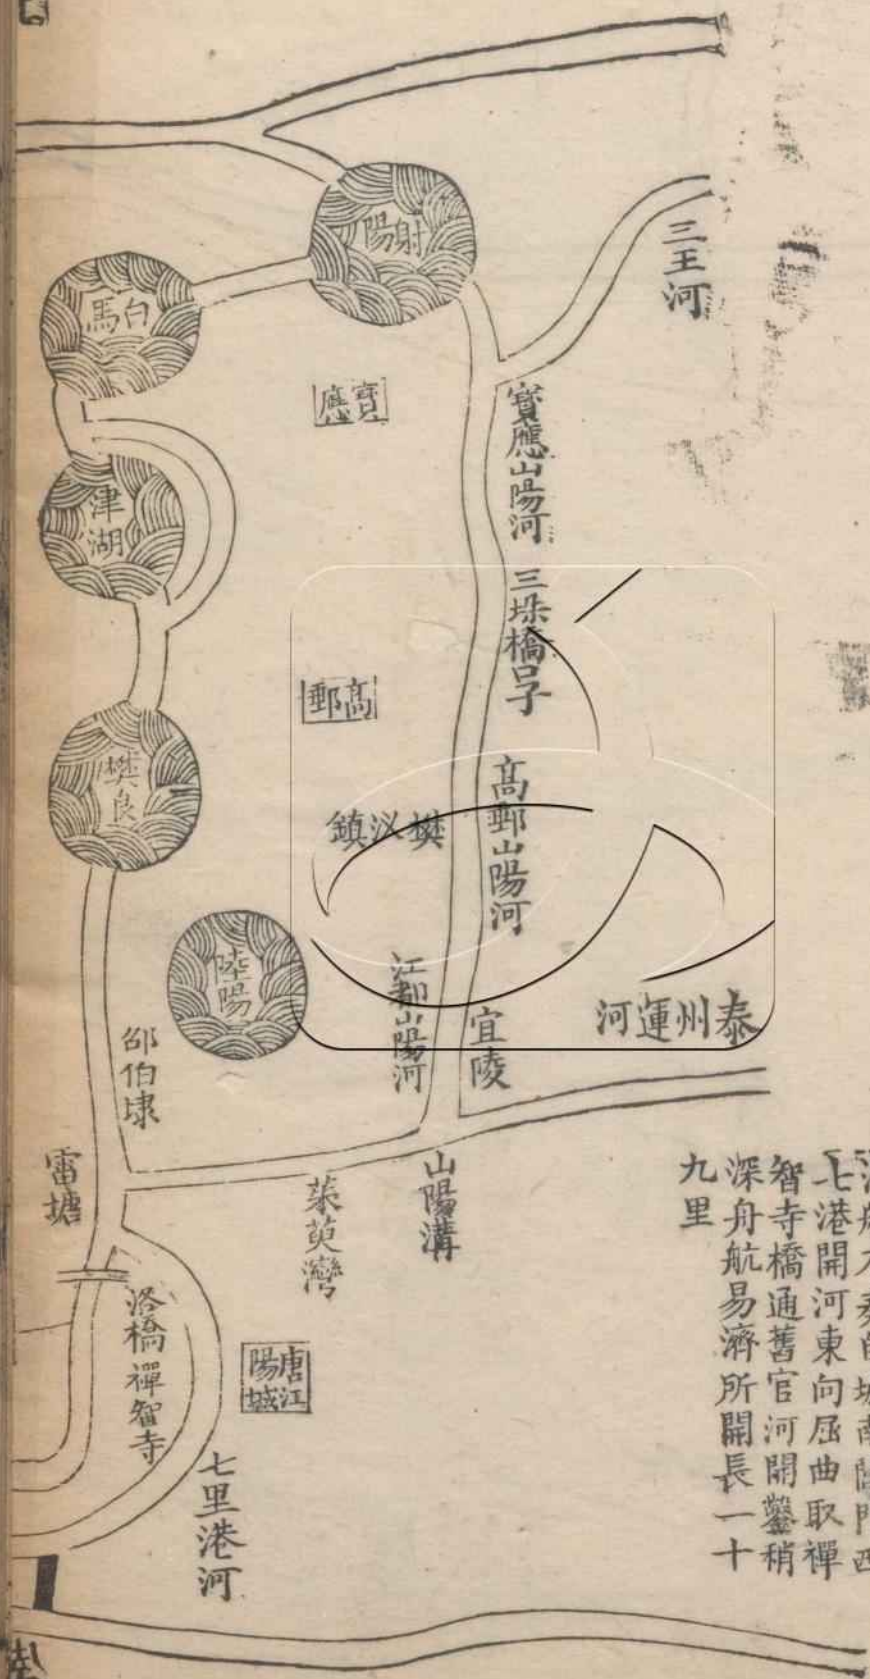 射陽
白馬
三王河
寶應
寶應山陽河
津湖
三垛橋口子
高郵
樊良
高郵山陽河
樊汊鎮
陸陽
江都山陽河
宜陵
泰州運河
邵伯埭
雷塘
茱萸灣
山陽溝
洛橋
禪智寺
唐江陽城
七里港河
七港開河東向屈曲取禪
智寺橋通舊官河開鑿稍
深舟航易濟所開長一十
九里